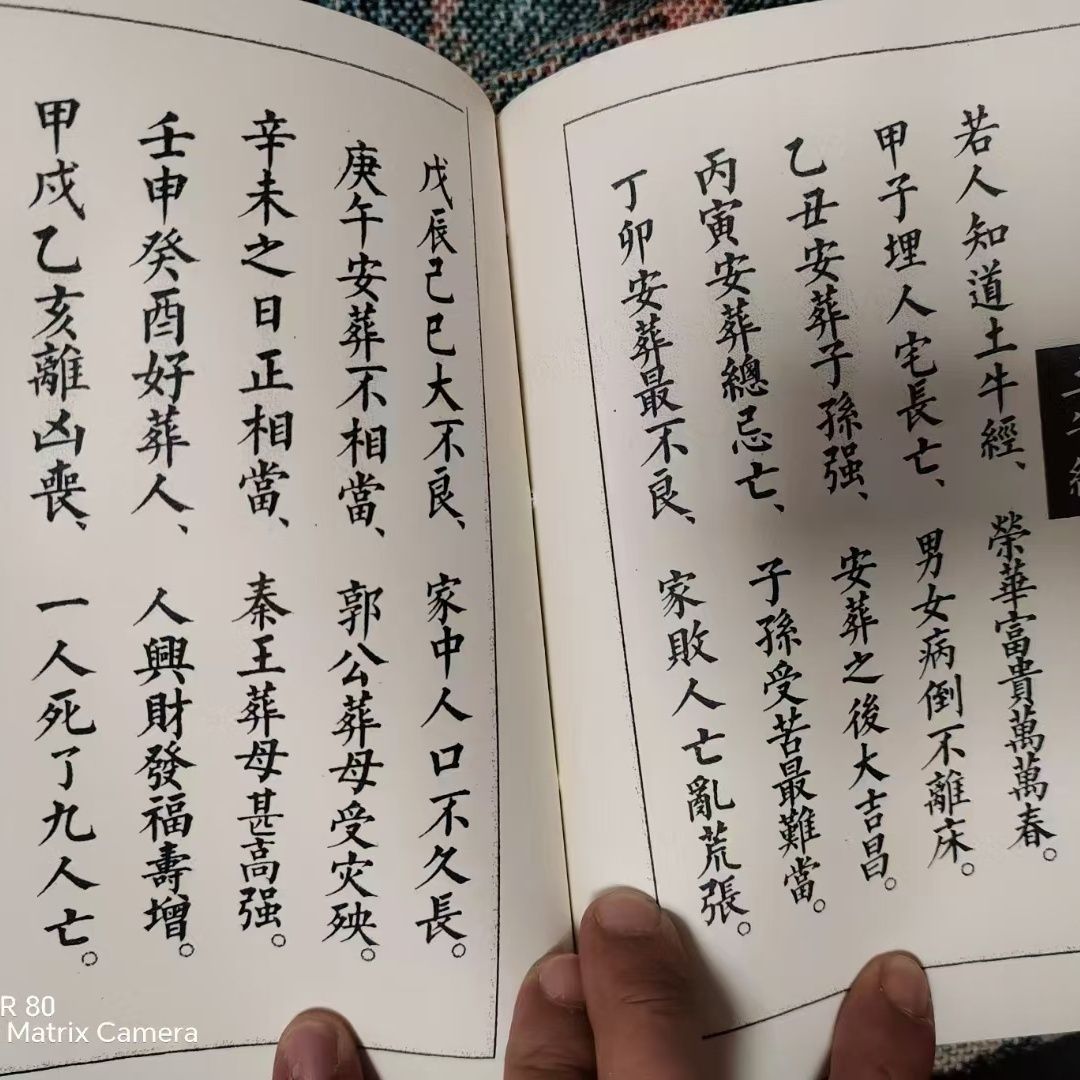 若人知道土牛經、榮華富貴萬萬春。
甲子埋人宅長亡、男女病倒不離床。
乙丑安葬子孫强、安葬之後大吉昌。
丙寅安葬總忌亡、子孫受苦最難當。
丁卯安葬最不良、家敗人亡亂荒張。
戊辰己巳大不良、家中人口不久長。
庚午安葬不相當、郭公葬母受灾殃。
辛未之日正相當、秦王葬母甚高强。
壬申癸酉好葬人、人興財發福壽增。
甲戌乙亥離凶喪、一人死了九人亡。
R 80
Matrix Camera